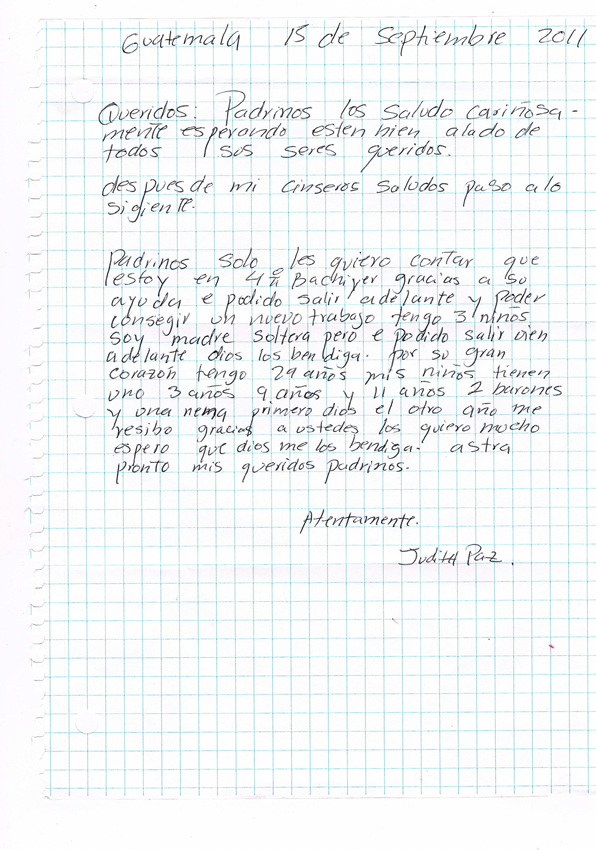 Guatemala 15 de septiembre 2011
Queridos: Padrinos los saludo cariñosa-
mente esperando esten bien alado de
todos sus seres queridos.
despues de mi cinseros saludos paso alo
sigiente.
Padrinos solo les quiero contar que
estoy en 4º Bachiyer gracias a su
ayuda e podido salir adelante y poder
consegir un nuevo trabajo tengo 3 niños
soy madre soltera pero e podido salir bien
adelante dios los bendiga. por su gran
corazón tengo 29 años mis niños tienen
uno 3 años 9 años y 11 años 2 barones
y una nena primero dios el otro año me
resibo gracias a ustedes los quiero mucho
espero que dios me los bendiga. astra
pronto mis queridos padrinos.
Atentamente.
Judith Paz.